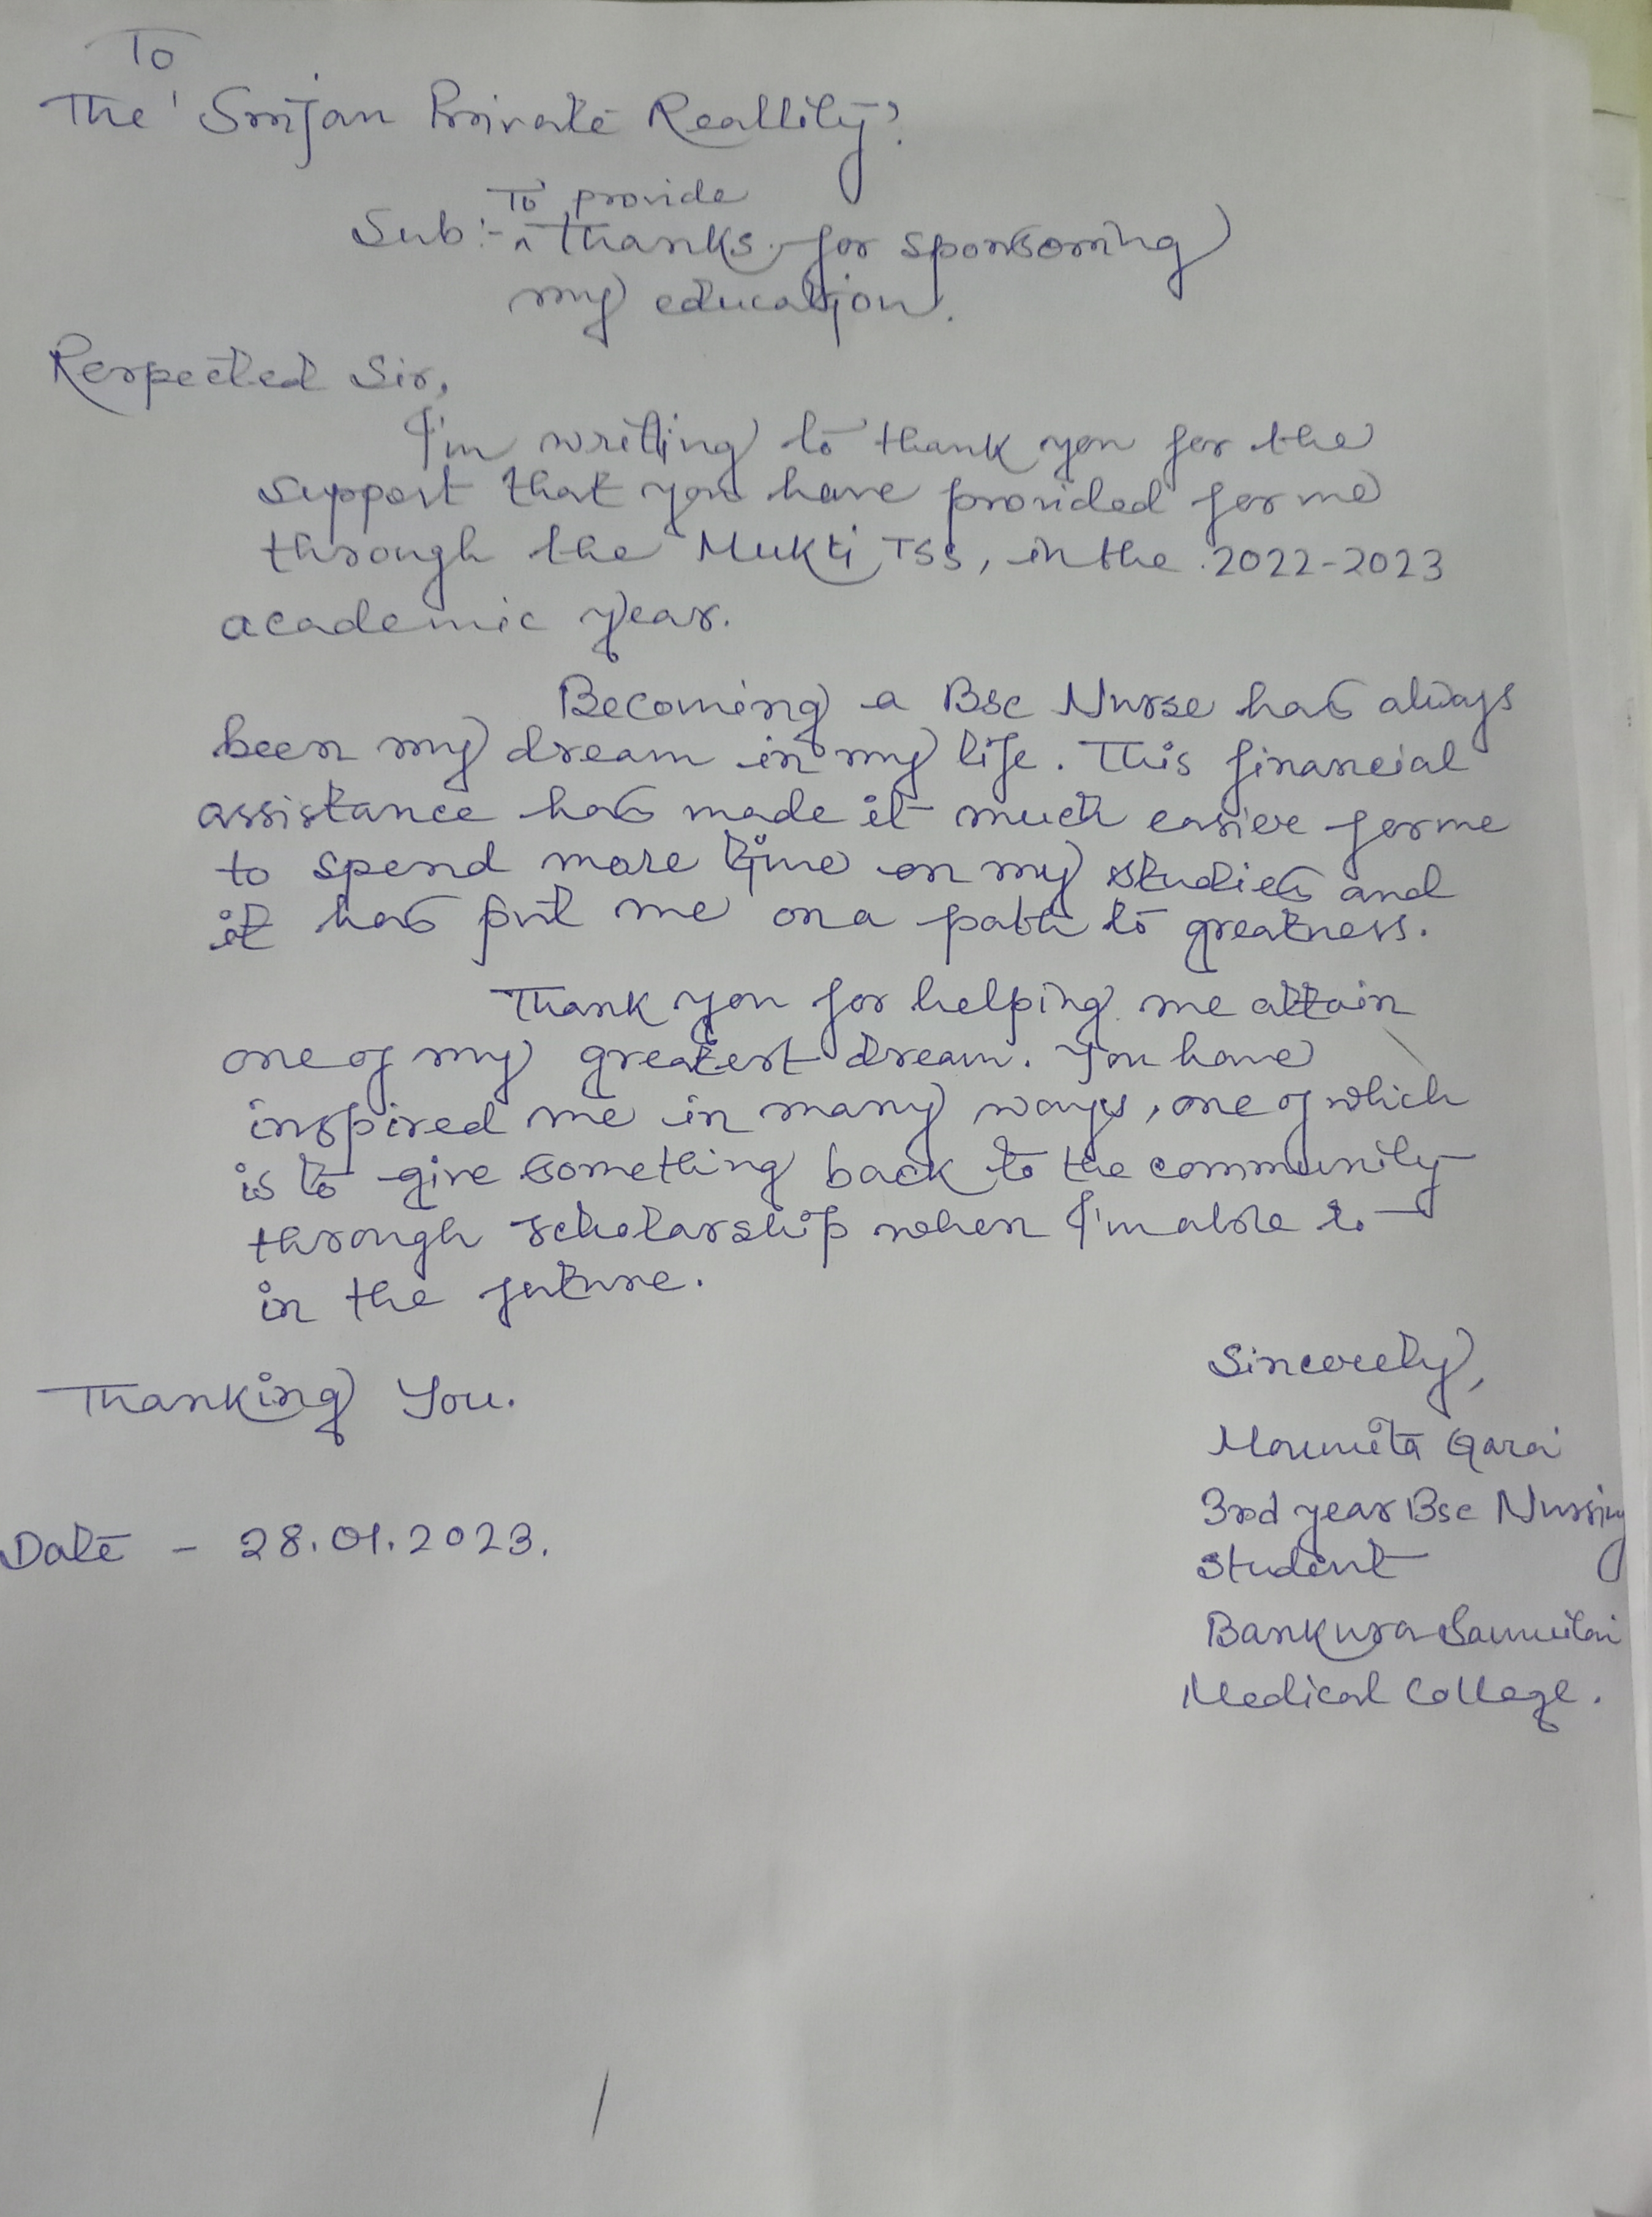 To
The 'Srijan Private Reallity'.
To provide
Sub:- ^ thanks for sponsoring
my education.
Respected Sir,
I'm writing to thank you for the
support that you have provided for me
through the Mukti TSS, in the 2022-2023
academic year.
Becoming a Bsc Nurse has always
been my dream in my life. This financial
assistance has made it much easier for me
to spend more time on my studies and
it has put me on a path to greatness.
Thank you for helping me attain
one of my greatest dream. You have
inspired me in many ways, one of which
is to give something back to the community
through scholarship when I'm able to
in the future.
Sincerely,
Thanking You.
Moumita Garai
3rd year Bsc Nursing
Date - 28.01.2023.
Student
Bankura Sammilani
Medical College.